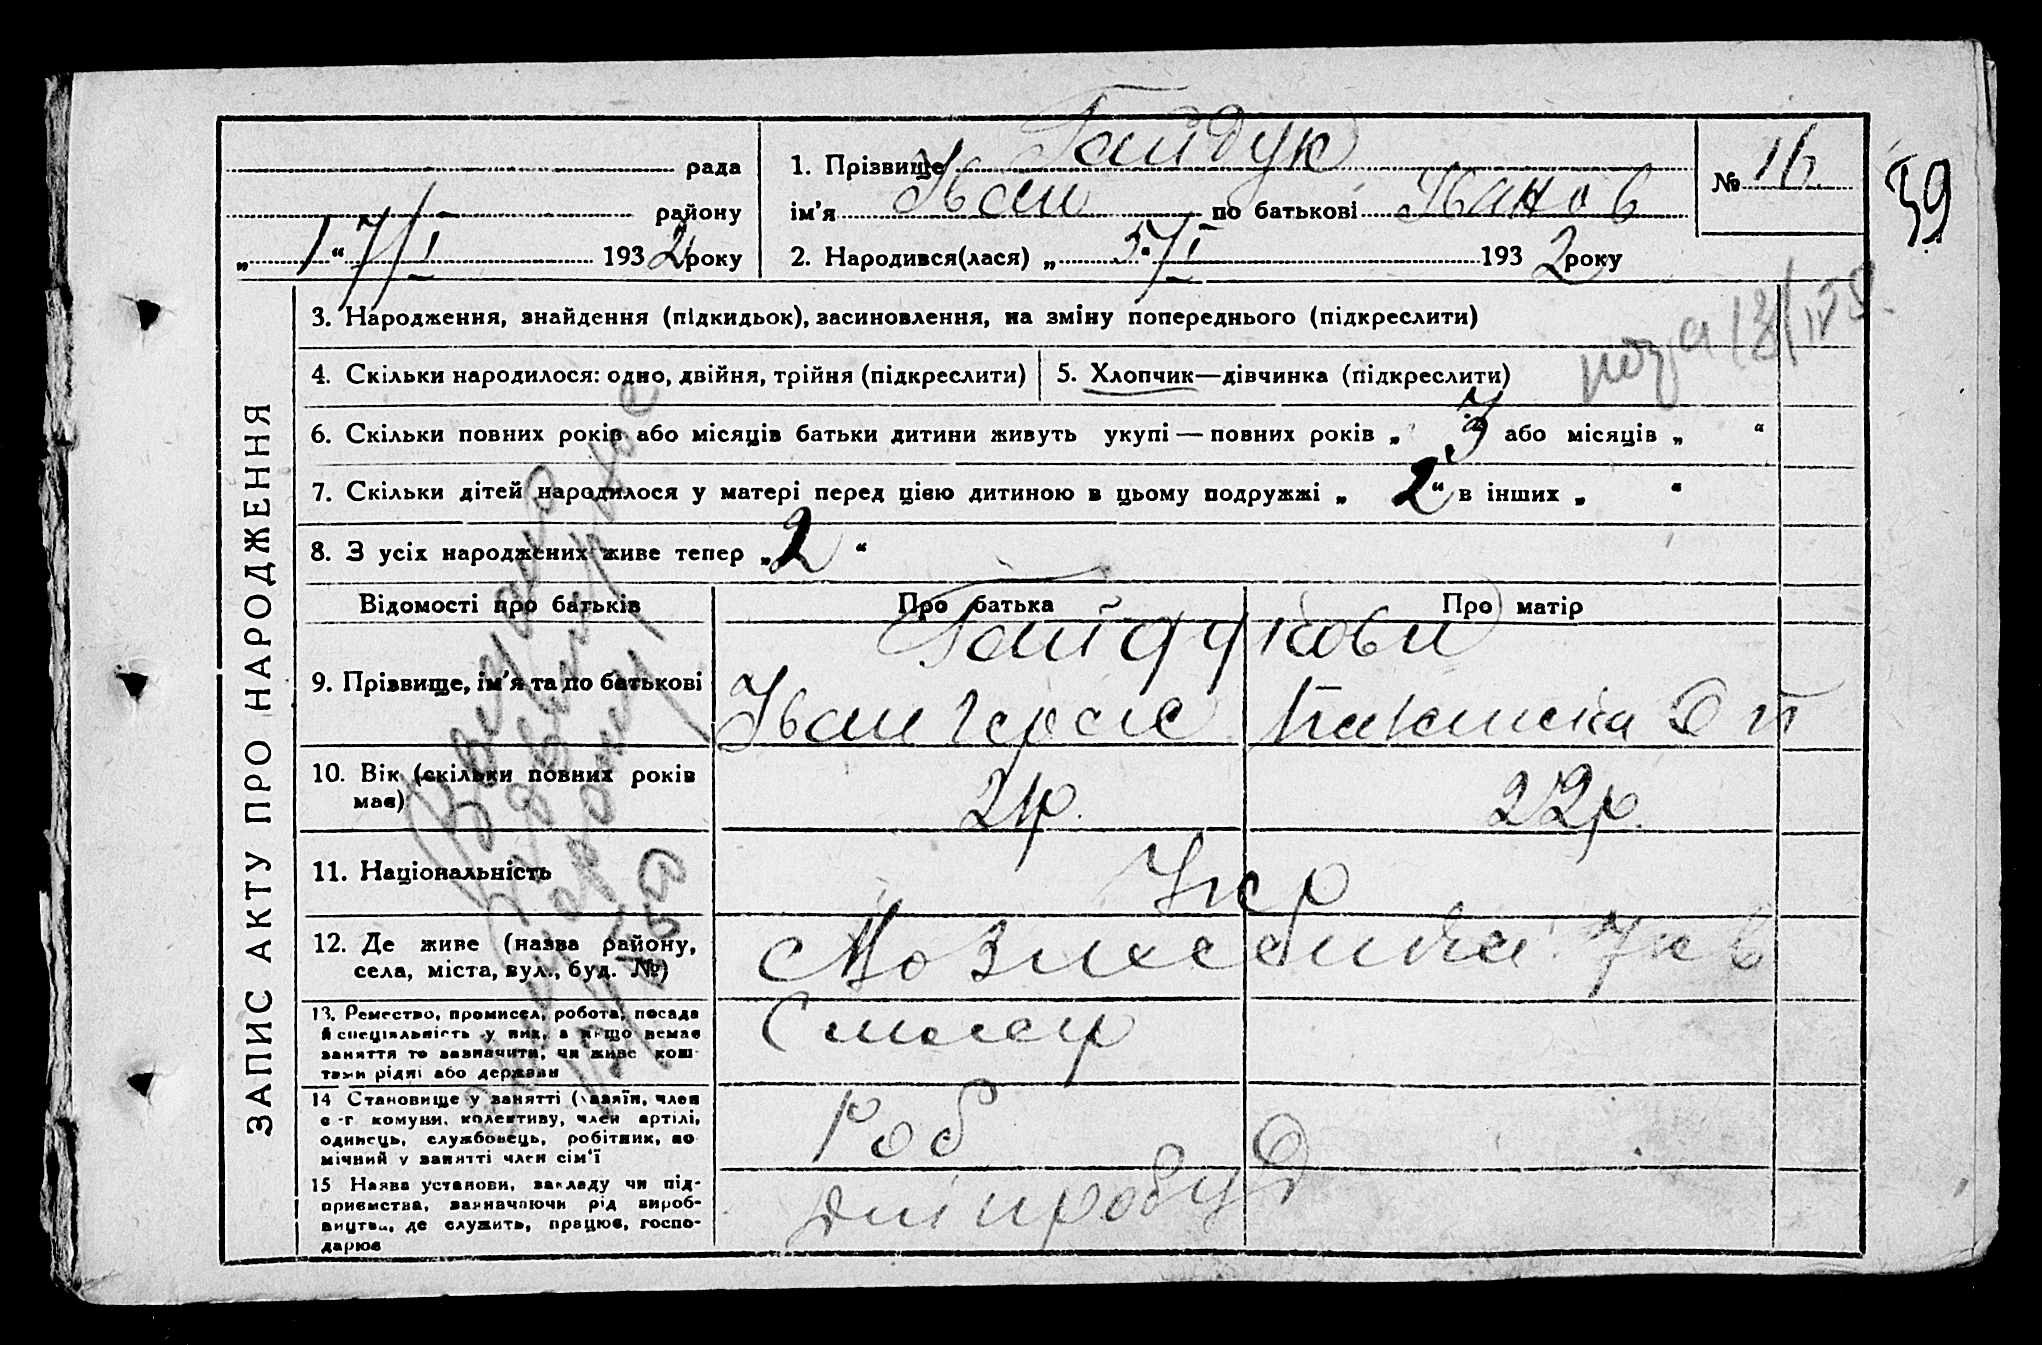 Гайдук
рада 1. Прізвище № 16
39
району ім'я Іван по батькові Іванов
„1“ 7/I 1932 року 2. Народився(лася) „5“/I 1932 року
ЗАПИС АКТУ ПРО НАРОДЖЕННЯ
3. Народження, знайдення (підкидьок), засиновлення, на зміну попереднього (підкреслити)
4. Скільки народилося: одно, двійня, трійня (підкреслити) 5. Хлопчик—дівчинка (підкреслити)
6. Скільки повних років або місяців батьки дитини живуть укупі — повних років „ 3 або місяців „ “
7. Скільки дітей народилося у матері перед цією дитиною в цьому подружжі „ 2“ в інших „ “
8. З усіх народжених живе тепер „2 “
Відомості про батьків Про батька Про матір
Гайдукови
9. Прізвище, ім'я та по батькові
Іван Герас
10. Вік (скільки повних років
має)
24р. 22р.
11. Національність Укр
12. Де живе (назва району,
села, міста, вул., буд. №)
13. Ремество, промисел, робота, посада
й спеціяльність у них, а якщо немає
заняття то зазначити, чи живе кош-
тами рідні або держави
Столяр
14 Становище у занятті (хазяїн, член
с-г комуни, колективу, член артілі,
одинець, службовець, робітник, по-
мічний у занятті член сім'ї
Роб
15 Назва установи, закладу чи під-
приємства, зазначаючи рід вироб-
ництва, де служить, працює, госпо-
дарює
Дніпробуд